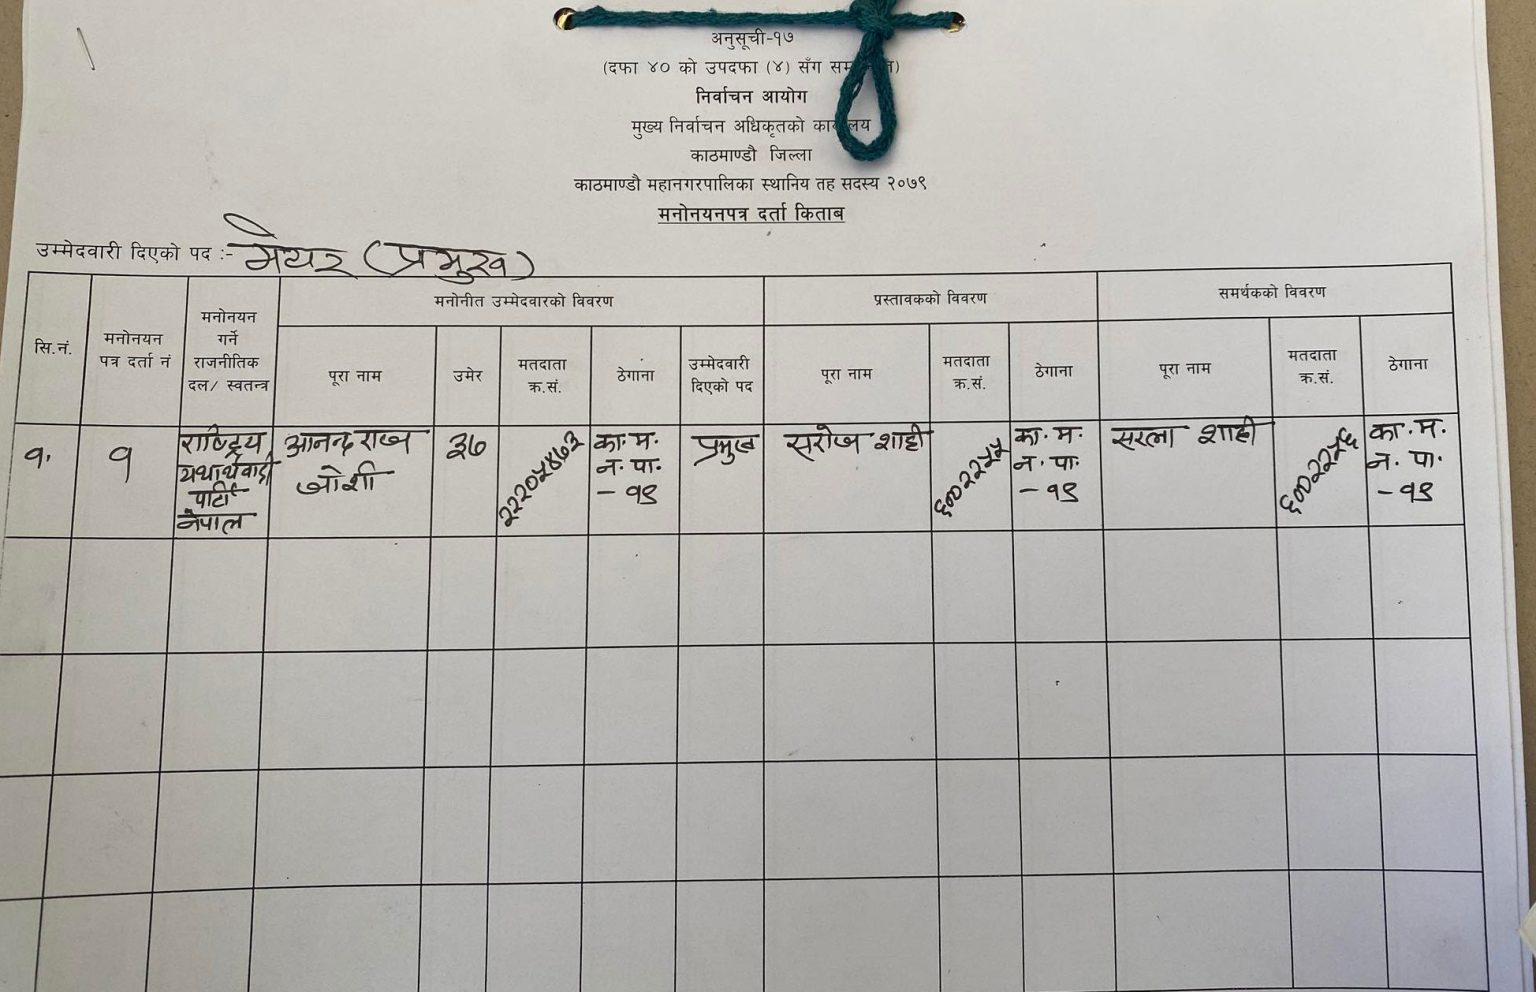 अनुसूची-१७
(दफा ४० को उपदफा (४) सँग
निर्वाचन आयोग
मुख्य निर्वाचन अधिकृतको
काठमाण्डौ जिल्ला
काठमाण्डौ महानगरपालिका स्थानिय तह सदस्य २०७९
मनोनयनपत्र दर्ता किताब
उम्मेदवारी दिएको पद :- मेयर (प्रमुख)
सि.नं.
मनोनयन
पत्र दर्ता नं
मनोनयन
गर्ने
राजनीतिक
दल/ स्वतन्त्र
मनोनीत उम्मेदवारको विवरण
प्रस्तावकको विवरण
समर्थकको विवरण
पूरा नाम
उमेर
मतदाता
क्र.सं.
ठेगाना
उम्मेदवारी
दिएको पद
पूरा नाम
मतदाता
क्र.सं.
ठेगाना
पूरा नाम
मतदाता
क्र.सं.
ठेगाना
१.
१
राष्ट्रिय
यथार्थवादी
पार्टी
नेपाल
आनन्द राज
जोशी
३७
२२२०५४७३
का. म.
न. पा.
- १९
प्रमुख
सरोज शाही
का. म.
न. पा.
- १९
सरला शाही
का. म.
न. पा.
- १९